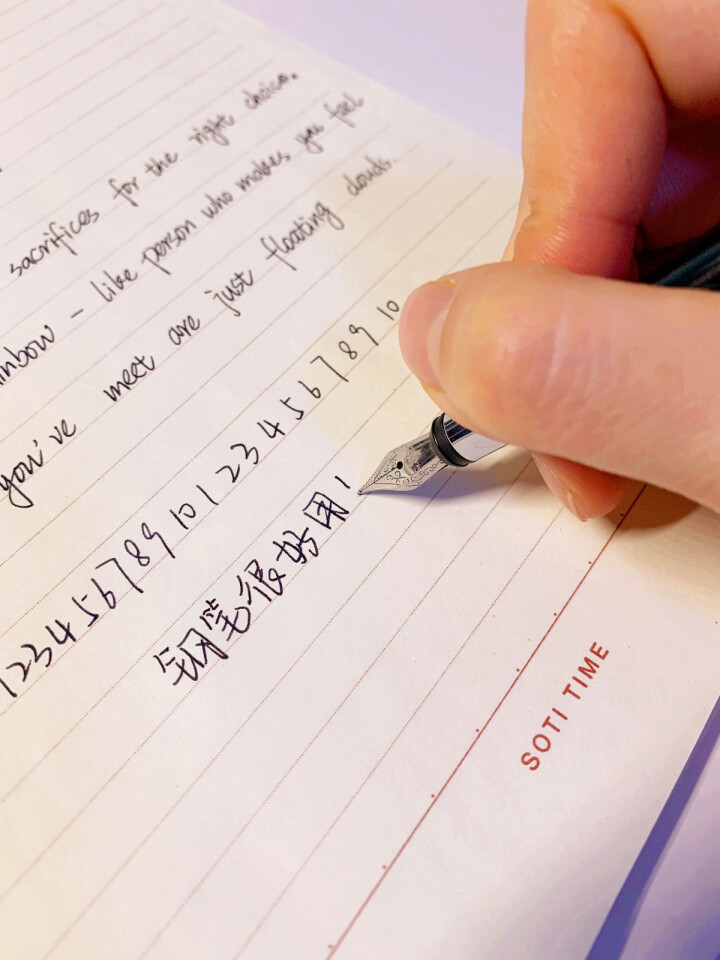 sacrifices for the right choice.
inbow - like person who makes you feel
you've meet are just floating clouds.
12345678910 12345678910
钢笔很好用!
SOTI TIME